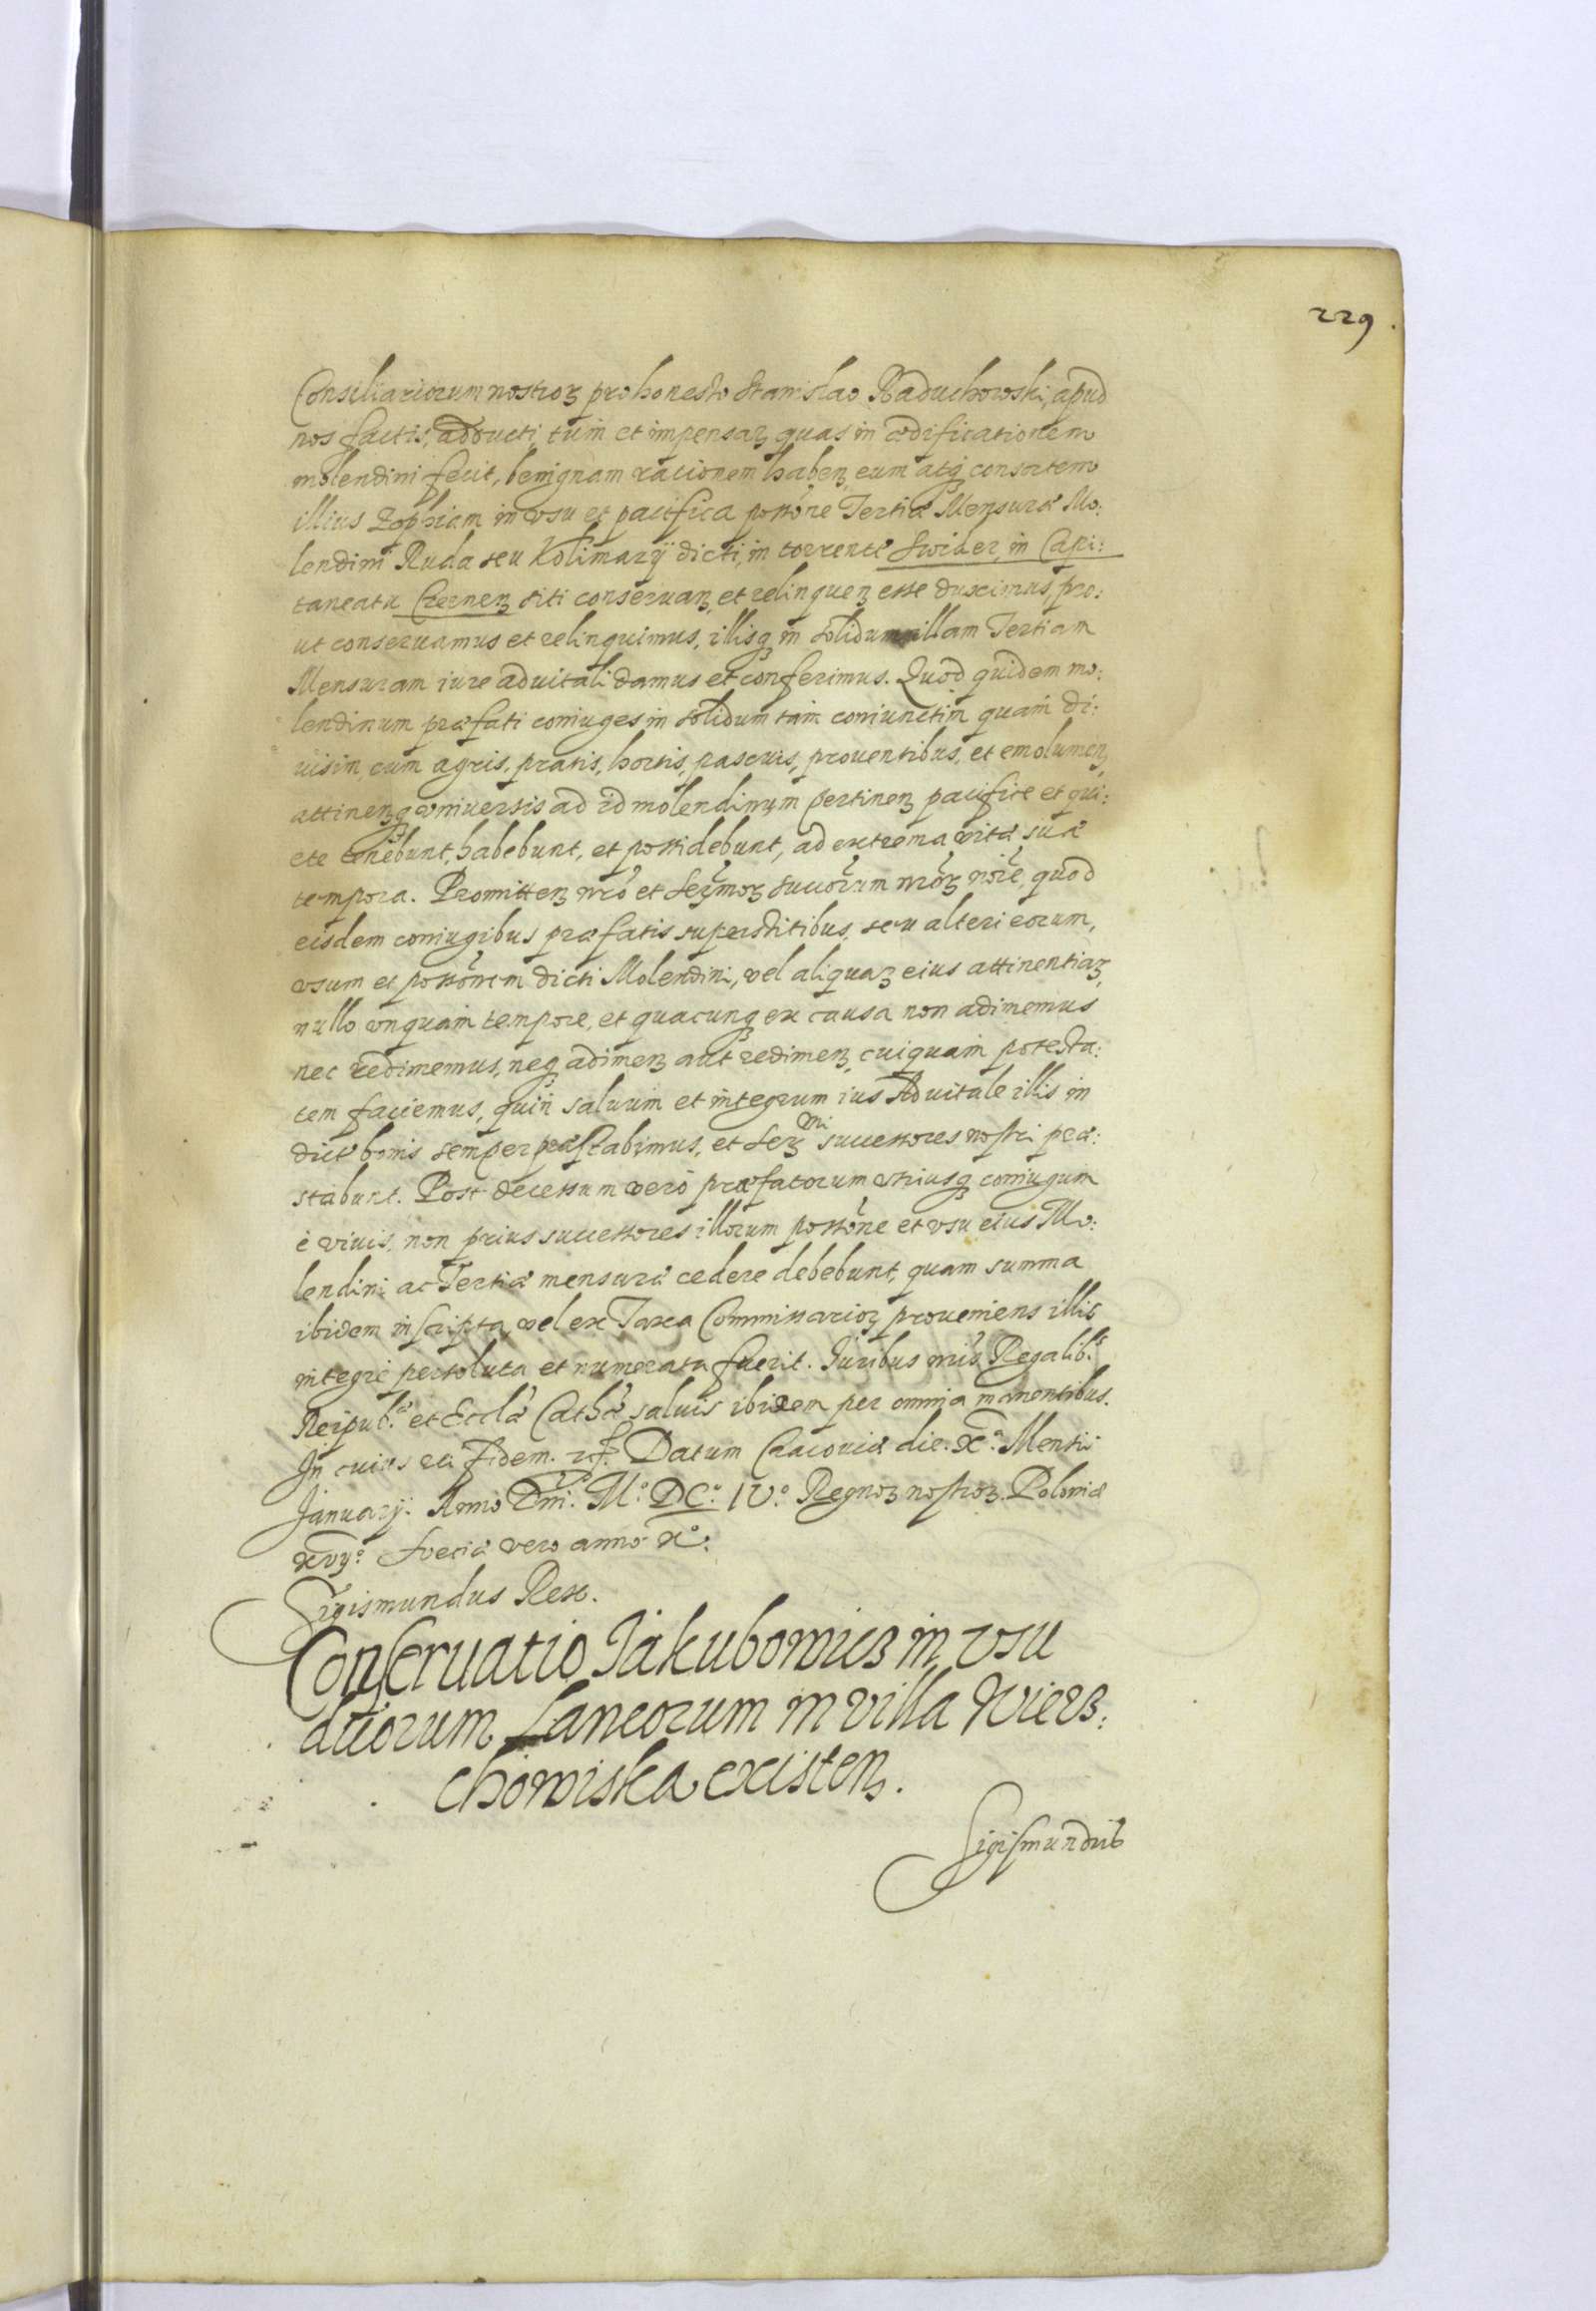 229.
Consiliariorum nostroꝝ pro honesto Stanislao Raduchowski, apud
nos factis, adducti, tum et impensaꝝ quas in ædificationem
molendini fecit, benignam rationem habenꝫ, eum atqꝫ consortem
illius Zophiam in vsu et pacifica possōne Tertiæ Mensuræ Mo:
lendini Ruda seu Kolimazÿ dicti, in torrente Swider, in Capi:
taneatu Czernenꝫ siti conseruanꝫ et relinquenꝫ esse duximus, pro:
ut conseruamus et relinquimus, illisqꝫ in solidum illam Tertiam
Mensuram iure aduitali damus et conferimus. Quod quidem mo:
lendinum præfati coniuges in solidum tam coniunctim quam di:
uisim, cum agris, pratis, hortis, pascuis, prouentibus, et emolumenꝫ
attinenꝫqꝫ vniuersis ad id molendinum pertinenꝫ pacifice et qui:
ete tenebunt, habebunt, et possidebunt, ad extrema vitæ suæ
tempora. Promittenꝫ nr̄o et Serꝫmoꝝ succōrum nr̄oꝝ nōie, quod
eisdem coniugibus præfatis superstitibus, seu alteri eorum,
vsum et possōnem dicti Molendini, vel aliquaꝝ eius attinentiaꝝ,
nullo vnquam tempore, et quacunqꝫ ex causa non adimemus
nec redimemus, neqꝫ adimenꝫ aut redimenꝫ cuiquam potesta:
tem faciemus, quin saluum et integrum ius Aduitale illis in
dict. bonis semper præstabimus, et Serꝫmi successores nostri præ:
stabunt. Post decessum vero præfatorum vtriusqꝫ coniugum
è viuis, non prius successores illorum possōne et vsu eius Mo:
lendini ac Tertiæ mensuræ cedere debebunt, quam summa
ibidem inscripta, vel ex Taxa Commissarioꝝ proueniens illis
integre persoluta et numerata fuerit. Iuribus nr̄is Regalib.s
Reipub.æ et Eccl̄æ Cath.æ saluis ibidem per omnia manentibus.
In cuius rei fidem. etc. Datum Cracouiæ die. X.a Mensis
Januarÿ. Anno Dni. M.o DC.o IV.o Regnoꝝ nostroꝝ Poloniæ
XVÿ.o Sueciæ vero anno X.o
Sigismundus Rex.
Conseruatio Jakubowicz in vsu
duorum Laneorum in villa Wierz:
chowiska existenꝫ.
Sigismundus